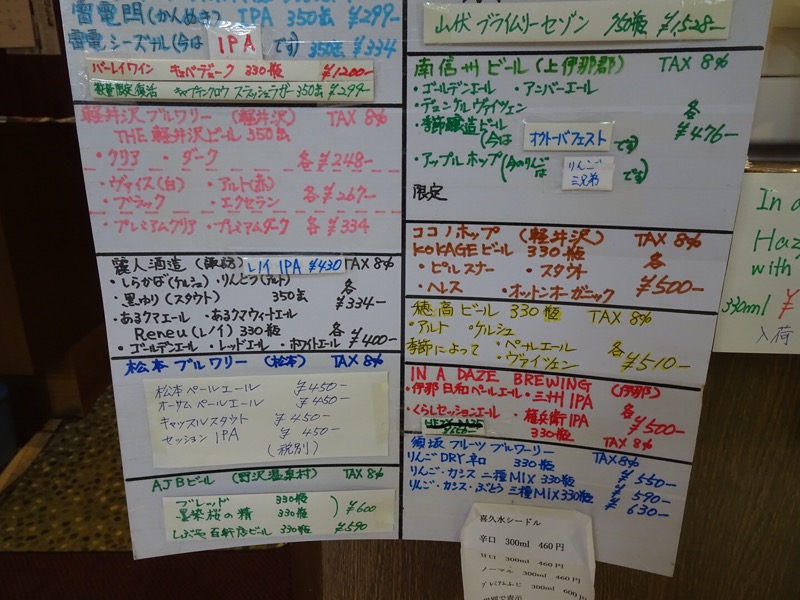 雷電閂(かんぬき) IPA 350缶 ¥299-
雷電シーズナル(今は IPA です) 350缶 ¥334
バーレイワイン 330瓶 ¥1200-
数量限定復活 350缶 ¥299-
軽井沢ブルワリー (軽井沢) TAX 8%
THE 軽井沢ビール 350缶
・クリア ・ダーク 各¥248-
・ヴァイス(白) ・アルト(赤)
・ブラック ・エクセラン 各¥267-
・プレミアムクリア ・プレミアムダーク 各¥334
麗人酒造 (諏訪) レイ IPA ¥430 TAX 8%
・しらかば(ケルシュ) ・りんどう(アルト)
・黒ゆり (スタウト) 350缶 各¥334-
・あるクマエール ・あるクマウィートエール
Reneu (レノイ) 330瓶 各¥400-
・ゴールデンエール ・レッドエール ・ホワイトエール
松本ブルワリー (松本) TAX 8%
松本ペールエール ¥450-
オーサムペールエール ¥450-
キャッスルスタウト ¥450-
セッション IPA ¥450-
(税別)
AJBビール (野沢温泉村) TAX 8%
ブレッド 330瓶
墨染桜の精 330瓶 ) ¥600
しぶや百軒店ビール 330瓶 ¥590
山伏 プライムリーセゾン 750瓶 ¥1,528-
南信州ビール (上伊那郡) TAX 8%
・ゴールデンエール ・アンバーエール
・デュンケルヴァイツェン 各
・季節醸造ビール ¥476-
(今は オクトーバフェスト です)
・アップルホップ (今のりんごは りんご三兄弟 です)
限定
ココノホップ (軽井沢) TAX 8%
KOKAGEビール 330瓶 各
・ピルスナー ・スタウト ¥500-
・ヘレス ・ホットンオーガニック
穂高ビール 330瓶 TAX 8%
・アルト ・ケルシュ
季節によって ・ペールエール 各¥510-
・ヴァイツェン
IN A DAZE BREWING (伊那)
・伊那日和ペールエール ・三州IPA 各
・くらしセッションエール ・権兵衛IPA ¥500-
330瓶 TAX 8%
須坂フルーツブルワリー
りんごDRY辛口 330瓶 ¥550-
りんご・カシス 二種MIX 330瓶 ¥590-
りんご・カシス・ぶどう 三種MIX 330瓶 ¥630-
喜久水シードル
辛口 300ml 460円
甘口 300ml 460円
ノーマル 300ml 460円
プレミアムふじ 300ml 600円
In a
Haz
with
330ml ¥
入荷